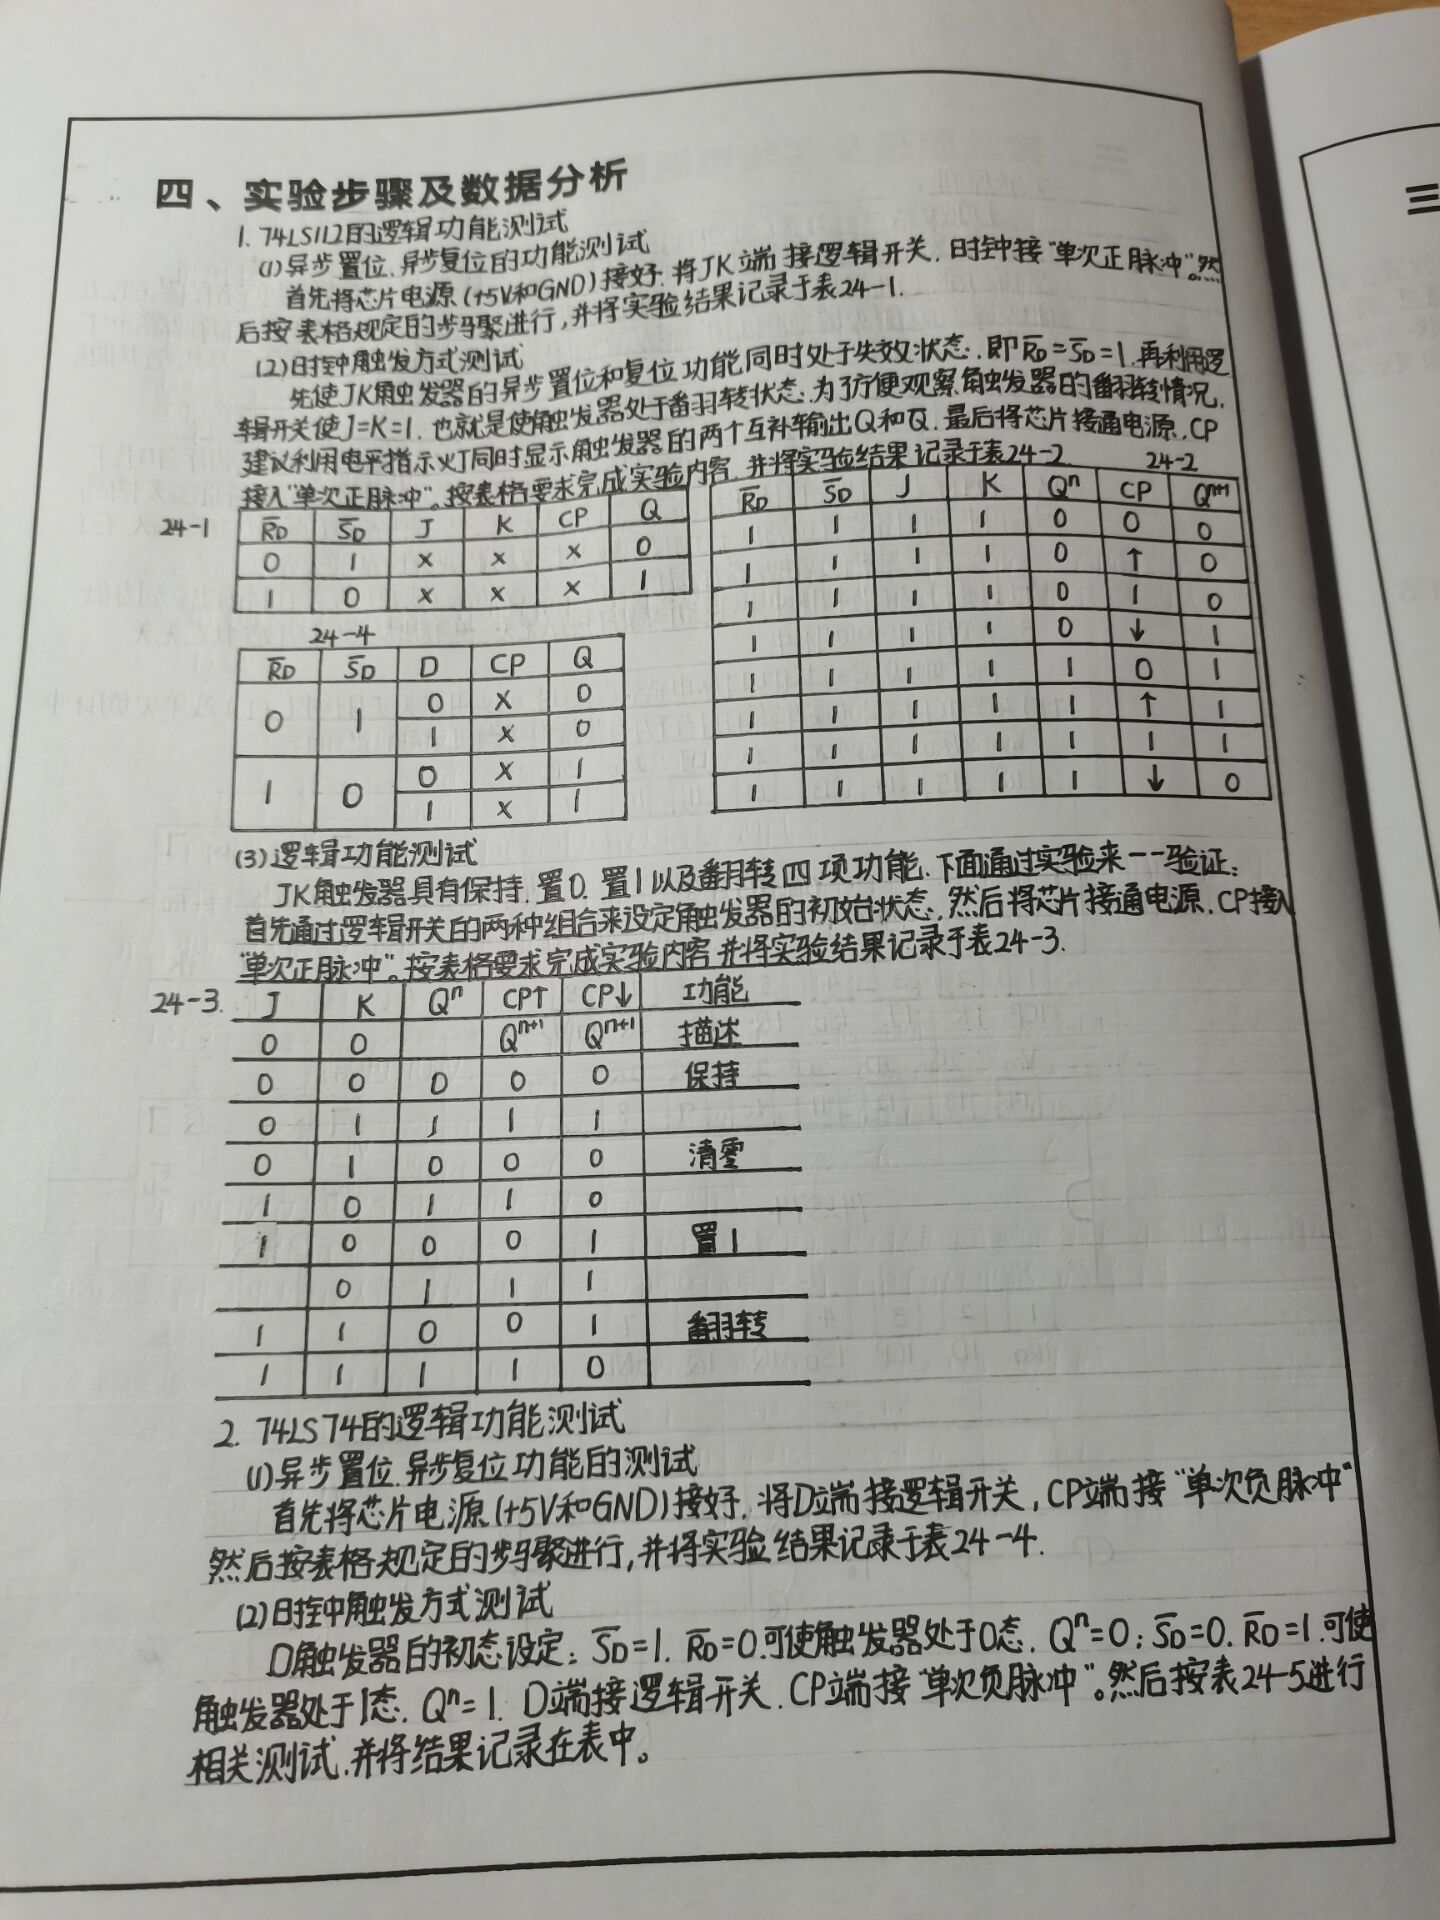 四、实验步骤及数据分析
1. 74LS112的逻辑功能测试
(1)异步置位、异步复位的功能测试
首先将芯片电源(+5V和GND)接好. 将JK端接逻辑开关. 时钟接“单次正脉冲”。然
后按表格规定的步骤进行,并将实验结果记录于表24-1.
(2)时钟触发方式测试
先使JK触发器的异步置位和复位功能同时处于失效状态. 即R̅D=S̅D=1. 再利用逻
辑开关使J=K=1. 也就是使触发器处于翻转状态. 为了方便观察触发器的翻转情况,
建议利用电平指示灯同时显示触发器的两个互补输出Q和Q̅. 最后将芯片接通电源. CP
接入“单次正脉冲”。按表格要求完成实验内容. 并将实验结果记录于表24-2.
24-1
R̅D S̅D J K CP Q
0 1 × × × 0
1 0 × × × 1
24-2
R̅D S̅D J K Qⁿ CP Qⁿ⁺¹
1 1 1 1 0 0 0
1 1 1 1 0 ↑ 0
1 1 1 1 0 1 0
1 1 1 1 0 ↓ 1
1 1 1 1 1 0 1
1 1 1 1 1 ↑ 1
1 1 1 1 1 1 1
1 1 1 1 1 ↓ 0
24-4
R̅D S̅D D CP Q
0 1 0 × 0
1 × 0
1 0 0 × 1
1 × 1
(3)逻辑功能测试
JK触发器具有保持. 置0. 置1以及翻转四项功能. 下面通过实验来一一验证:
首先通过逻辑开关的两种组合来设定触发器的初始状态. 然后将芯片接通电源. CP接入
“单次正脉冲”。按表格要求完成实验内容并将实验结果记录于表24-3.
24-3.
J K Qⁿ CP↑ CP↓ 功能
0 0 Qⁿ⁺¹ Qⁿ⁺¹ 描述
0 0 0 0 0 保持
0 1 1 1 1
0 1 0 0 0 清零
1 0 1 1 0
1 0 0 0 1 置1
0 1 1 1
1 1 0 0 1 翻转
1 1 1 1 0
2. 74LS74的逻辑功能测试
(1)异步置位. 异步复位功能的测试
首先将芯片电源(+5V和GND)接好. 将D端接逻辑开关, CP端接“单次负脉冲”
然后按表格规定的步骤进行,并将实验结果记录于表24-4.
(2)时钟触发方式测试
D触发器的初态设定: S̅D=1. R̅D=0.可使触发器处于0态. Qⁿ=0; S̅D=0. R̅D=1.可使
触发器处于1态. Qⁿ=1. D端接逻辑开关. CP端接“单次负脉冲”。然后按表24-5进行
相关测试.并将结果记录在表中。
三